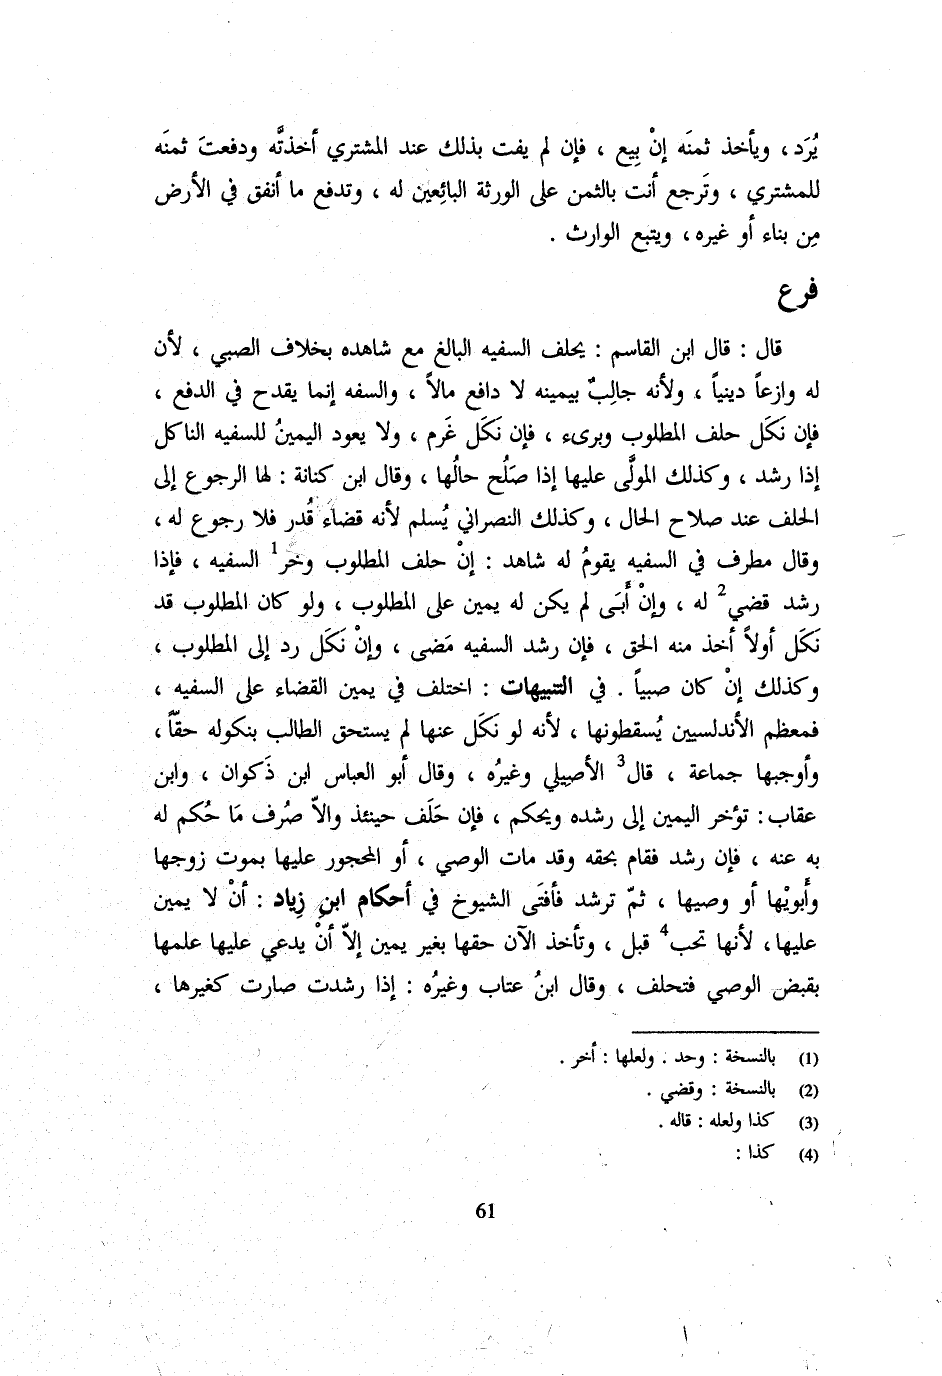 يُرَد ، ويأخذ ثمنَه إنْ بِيع ، فإن لم يفت بذلك عند المشتري أخذتَّه ودفعتَ ثمنَه
للمشتري ، وتَرجع أنت بالثمن على الورثة البائِعين له ، وتدفع ما أنفق في الأرض
مِن بناء أو غيره ، ويتبع الوارث .
فرع
قال : قال ابن القاسم : يحلف السفيه البالغ مع شاهده بخلاف الصبي ، لأن
له وازعاً دينياً ، ولأنه جالِبٌ بيمينه لا دافع مالاً ، والسفه إنما يقدح في الدفع ،
فإن نَكَل حلف المطلوب وبرىء ، فإن نَكَل غَرم ، ولا يعود اليمينُ للسفيه الناكل
إذا رشد ، وكذلك المولَّى عليها إذا صَلُح حالُها ، وقال ابن كنانة : لها الرجوع إلى
الحلف عند صلاح الحال ، وكذلك النصراني يُسلم لأنه قضاء قُدر فلا رجوع له ،
وقال مطرف في السفيه يقومُ له شاهد : إنْ حلف المطلوب وخر1 السفيه ، فإذا
رشد قضي2 له ، وإنْ أَبَى لم يكن له يمين على المطلوب ، ولو كان المطلوب قد
نَكَل أولاً أخذ منه الحق ، فإن رشد السفيه مَضى ، وإنْ نَكَل رد إلى المطلوب ،
وكذلك إنْ كان صبياً . في التنبيهات : اختلف في يمين القضاء على السفيه ،
فمعظم الأندلسيين يُسقطونها ، لأنه لو نَكَل عنها لم يستحق الطالب بنكوله حقّاً ،
وأوجبها جماعة ، قال3 الأصِيلي وغيرُه ، وقال أبو العباس ابن ذَكوان ، وابن
عقاب : تؤخر اليمين إلى رشده ويحكم ، فإن حَلَف حينئذ والاّ صُرف مَا حُكم له
به عنه ، فإن رشد فقام بحقه وقد مات الوصي ، أو المحجور عليها بموت زوجها
وأَبويْها أو وصيها ، ثمّ ترشد فأفتَى الشيوخ في أحكام ابنِ زِياد : أنْ لا يمين
عليها ، لأنها تحب4 قبل ، وتأخذ الآن حقها بغير يمين إلاّ أنْ يدعي عليها علمها
بقبض الوصي فتحلف ، وقال ابنُ عتاب وغيرُه : إذا رشدت صارت كغيرها ،
(1) بالنسخة : وحد . ولعلها : أخر .
(2) بالنسخة : وقضي .
(3) كذا ولعله : قاله .
(4) كذا :
61